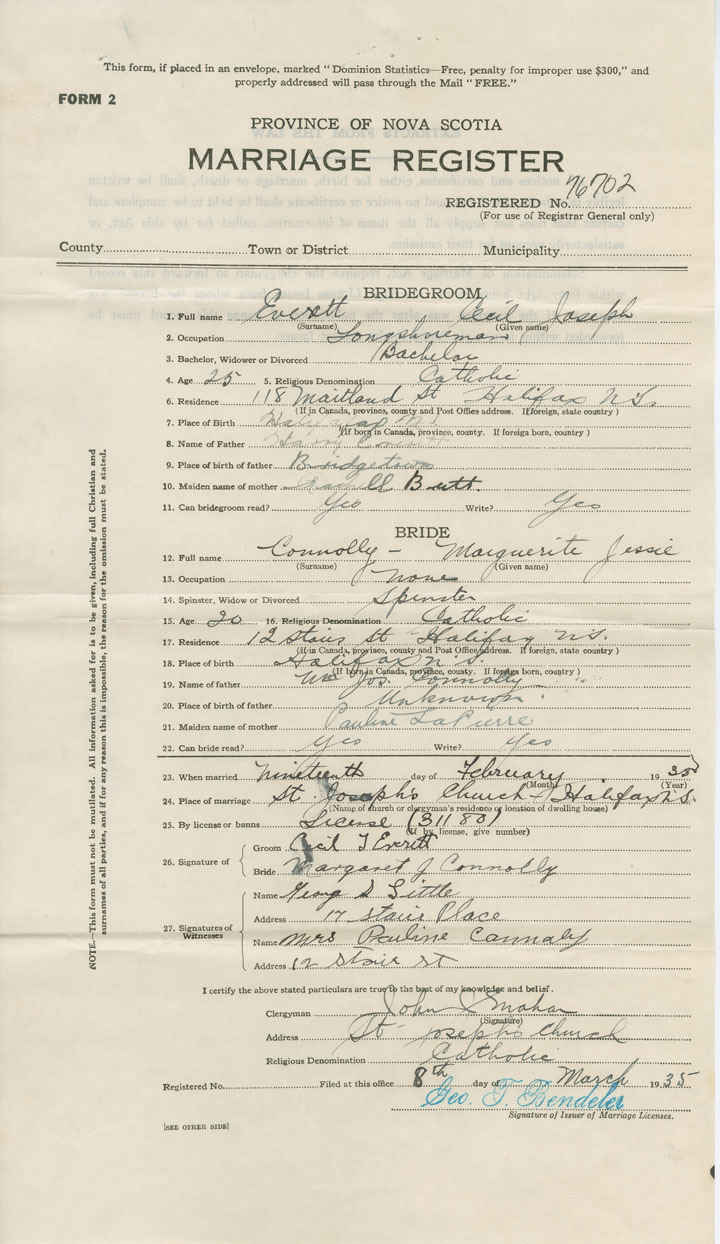 This form, if placed in an envelope, marked "Dominion Statistics—Free, penalty for improper use $300," and
properly addressed will pass through the Mail "FREE."
FORM 2
PROVINCE OF NOVA SCOTIA
MARRIAGE REGISTER
REGISTERED No. 76702
(For use of Registrar General only)
County Town or District Municipality
BRIDEGROOM
1. Full name Everett Cecil Joseph
(Surname) (Given name)
2. Occupation Longshoreman
3. Bachelor, Widower or Divorced Bachelor
4. Age 25 5. Religious Denomination Catholic
6. Residence 118 Maitland St Halifax N.S.
(If in Canada, province, county and Post Office address. If foreign, state country)
7. Place of Birth Halifax N.S.
(If born in Canada, province, county. If foreign born, country)
8. Name of Father Harry Everett
9. Place of birth of father Bridgetown
10. Maiden name of mother Butt.
11. Can bridegroom read? Yes Write? Yes
BRIDE
12. Full name Connolly – Marguerite Jessie
(Surname) (Given name)
13. Occupation none
14. Spinster, Widow or Divorced Spinster
15. Age 20 16. Religious Denomination Catholic
17. Residence 12 Stairs St Halifax N.S.
(If in Canada, province, county and Post Office address. If foreign, state country)
18. Place of birth Halifax N.S.
(If born in Canada, province, county. If foreign born, country)
19. Name of father Wm Jos. Connolly
20. Place of birth of father Unknown.
21. Maiden name of mother Pauline LaPierre
22. Can bride read? Yes Write? Yes
23. When married Nineteenth day of February 1935
(Month) (Year)
24. Place of marriage St. Joseph's Church Halifax N.S.
(Name of church or clergyman's residence or location of dwelling house)
25. By license or banns License (31180)
(If by license, give number)
26. Signature of Groom Cecil J Everett
Bride Margaret J Connolly
27. Signatures of Witnesses
Name George D Little
Address 17 Stairs Place
Name Mrs Pauline Connaly
Address 12 Stair st
I certify the above stated particulars are true to the best of my knowledge and belief.
Clergyman John J Mahar
(Signature)
Address St Joseph's Church
Religious Denomination Catholic
Registered No. Filed at this office 8th day of March 1935
Geo. T. Bendeler
Signature of Issuer of Marriage Licenses.
[SEE OTHER SIDE]
NOTE.—This form must not be mutilated. All information asked for is to be given, including full Christian and
surnames of all parties, and if for any reason this is impossible, the reason for the omission must be stated.